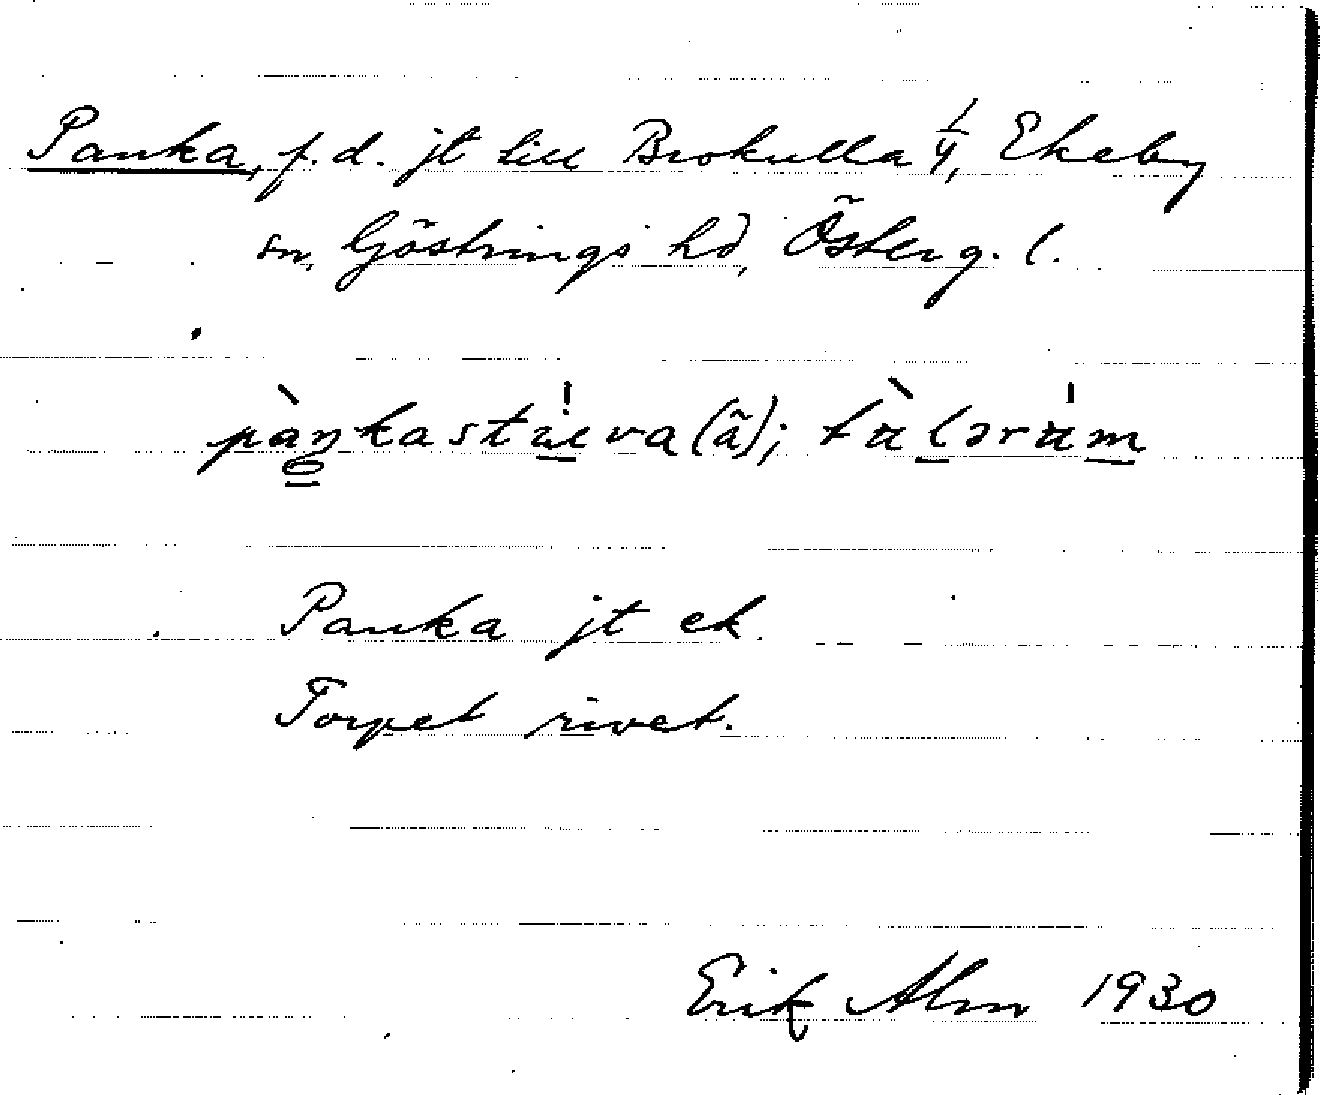 Panka, f.d. jt till Brokulla 1/4, Ekeby
sn, Göstrings hd, Österg. l.
Panka jt ek.
Torpet rivet.
Erik Alm 1930